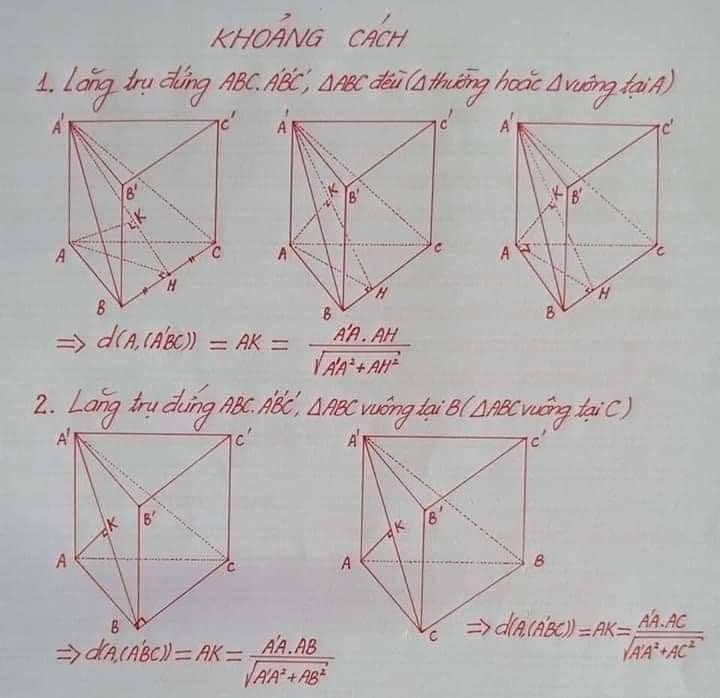 KHOẢNG CÁCH
1. Lăng trụ đứng ABC.A'B'C', ΔABC đều (Δ thường hoặc Δ vuông tại A)
A' C' A' C' A' C'
B' B' B'
K K K
A C A C A C
H H H
B B B
=> d(A,(A'BC)) = AK = A'A.AH / √A'A²+AH²
2. Lăng trụ đứng ABC.A'B'C', ΔABC vuông tại B (ΔABC vuông tại C)
A' C' A' C'
B' B'
K K
A C A B
B C
=> d(A,(A'BC)) = AK = A'A.AB / √A'A²+AB²
=> d(A,(A'BC)) = AK = A'A.AC / √A'A²+AC²